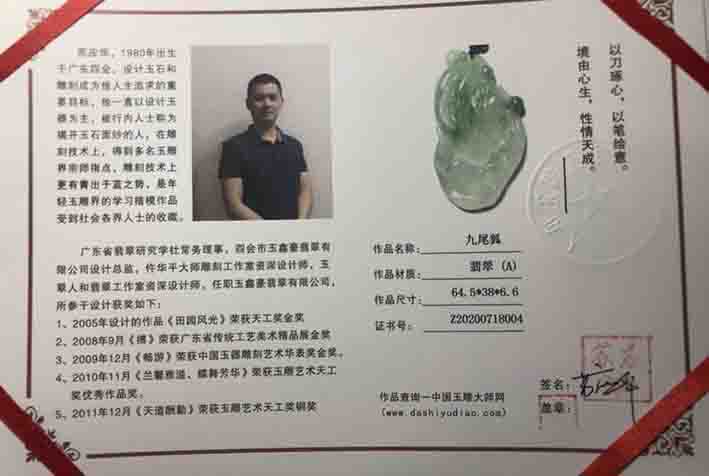 1980年出生
于广东四会，设计玉石和
雕刻成为他人生追求的重
要目标，他一直以设计玉
器为主，被行内人士称为
揭开玉石面纱的人，在雕
刻技术上，得到多名玉雕
界宗师指点，雕刻技术上
更有青出于蓝之势，是年
轻玉雕界的学习楷模作品
受到社会各界人士的收藏。
广东省翡翠研究学社常务理事，四会市玉鑫豪翡翠有
限公司设计总监，仵华平大师雕刻工作室资深设计师，玉
翠人和翡翠工作室资深设计师。任职玉鑫豪翡翠有限公司，
所参于设计获奖如下：
1、2005年设计的作品《田园风光》荣获天工奖金奖
2、2008年9月《搏》荣获广东省传统工艺美术精品展金奖
3、2009年12月《畅游》荣获中国玉器雕刻艺术华表奖金奖。
4、2010年11月《兰馨雅溢、蝶舞芳华》荣获玉雕艺术天工
奖优秀作品奖。
5、2011年12月《天道酬勤》荣获玉雕艺术天工奖铜奖
以刀琢心，以笔绘意。
境由心生，性情天成。
作品名称： 九尾狐
作品材质： 翡翠 (A)
作品尺寸： 64.5*38*6.6
证书号： Z20200718004
作品查询一中国玉雕大师网
(www.dashiyudiao.com)
签名：
盖章：